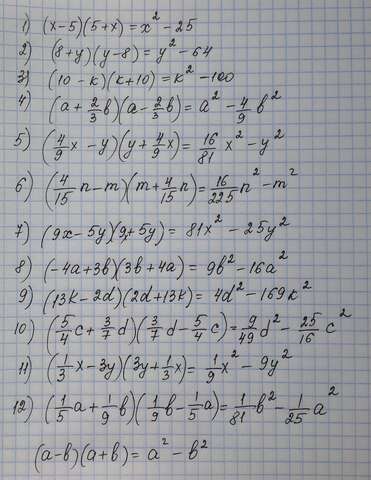 1) (x-5)(5+x)=x²-25
2) (8+y)(y-8)=y²-64
3) (10-k)(k+10)=k²-100
4) (a+2/3b)(a-2/3b)=a²-4/9b²
5) (4/9x-y)(y+4/9x)=16/81x²-y²
6) (4/15n-m)(m+4/15n)=16/225n²-m²
7) (9x-5y)(9x+5y)=81x²-25y²
8) (-4a+3b)(3b+4a)=9b²-16a²
9) (13k-2d)(2d+13k)=4d²-169k²
10) (5/4c+3/7d)(3/7d-5/4c)=9/49d²-25/16c²
11) (1/3x-3y)(3y+1/3x)=1/9x²-9y²
12) (1/5a+1/9b)(1/9b-1/5a)=1/81b²-1/25a²
(a-b)(a+b)=a²-b²